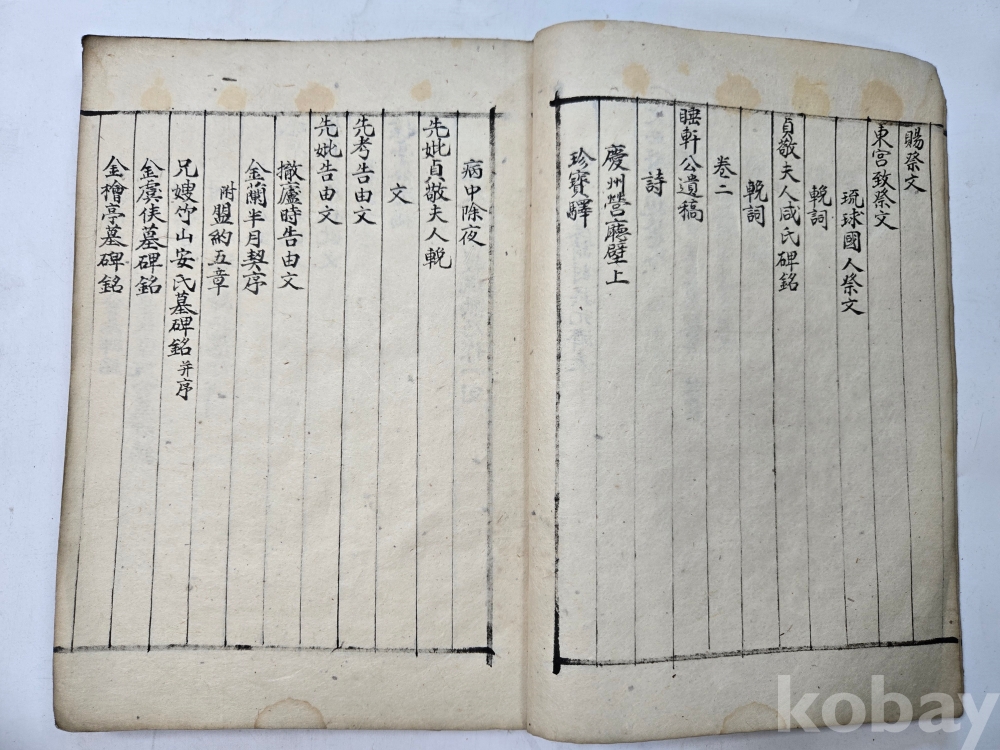 賜祭文
東宮致祭文
琉球國人祭文
輓詞
貞敬夫人咸氏碑銘
輓詞
卷二
睡軒公遺稿
詩
慶州營廳壁上
珍寶驛
病中除夜
先妣貞敬夫人輓
文
先考告由文
先妣告由文
撤廬時告由文
金蘭半月契序
附盟約五章
兄嫂竹山安氏墓碑銘并序
金虞侯墓碑銘
金檜亭墓碑銘
kobay